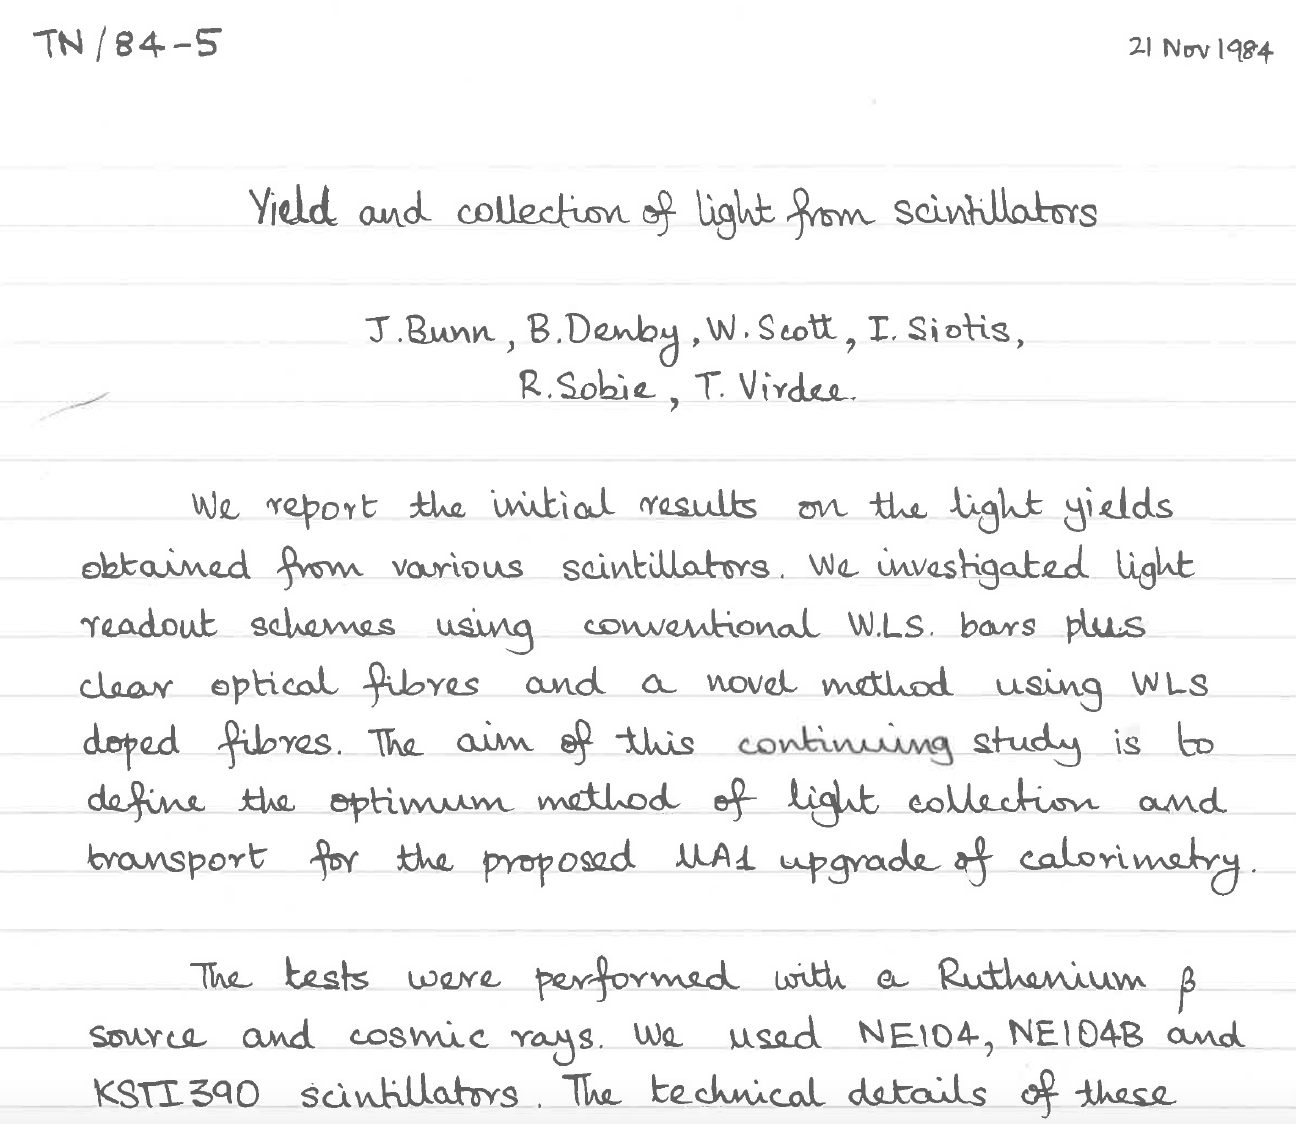 TN/84-5
21 Nov 1984
Yield and collection of light from scintillators
J. Bunn, B. Denby, W. Scott, I. Siotis,
R. Sobie, T. Virdee.
We report the initial results on the light yields
obtained from various scintillators. We investigated light
readout schemes using conventional W.L.S. bars plus
clear optical fibres and a novel method using WLS
doped fibres. The aim of this continuing study is to
define the optimum method of light collection and
transport for the proposed UA1 upgrade of calorimetry.
The tests were performed with a Ruthenium β
source and cosmic rays. We used NE104, NE104B and
KSTI390 scintillators. The technical details of these